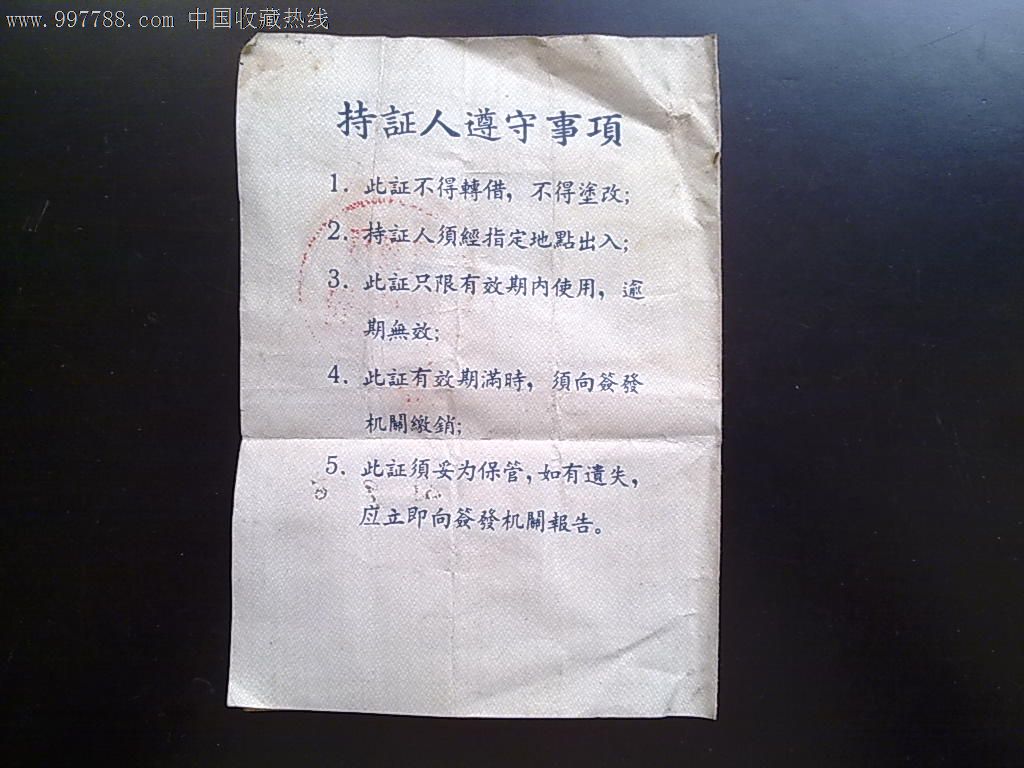 www.997788.com 中国收藏热线
持証人遵守事項
1. 此証不得轉借，不得塗改；
2. 持証人須經指定地點出入；
3. 此証只限有效期内使用，逾
期無效；
4. 此証有效期滿時，須向簽發
机關繳銷；
5. 此証須妥为保管，如有遺失，
应立即向簽發机關報告。